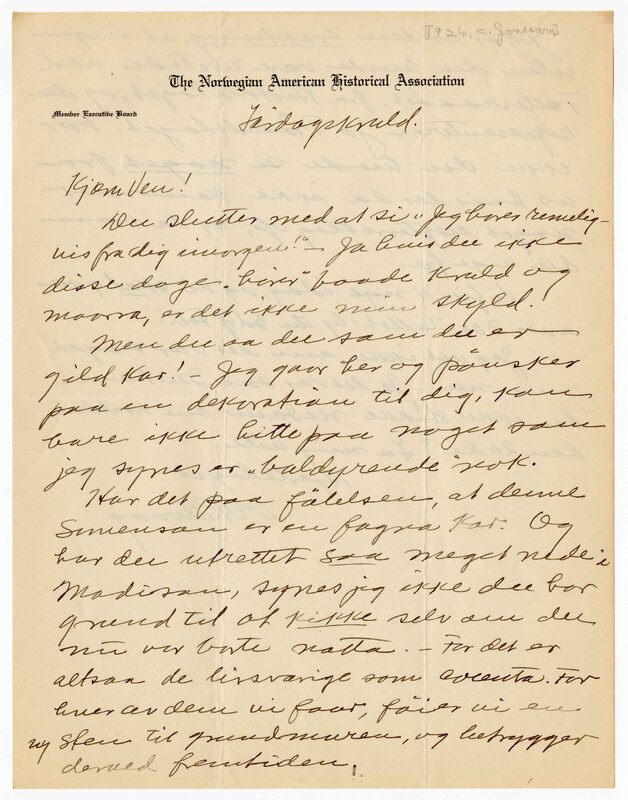 [1926, c. January]
The Norwegian American Historical Association
Member Executive Board
Lördagskvæld.
Kjære Ven!
Du slutter med at si "Jeg hörer rimelig-
vis fra dig imorgen!" - Ja hvis du ikke
disse dage "hörer" baade kvæld og
moorra, er det ikke min skyld!
Men du aa du som du er
gild kar! - Jeg gaar her og pönsker
paa en dekoration til dig, kan
bare ikke hitte paa noget som
jeg synes er "baldyrende" nok.
Har det paa fölelsen, at denne
Simenson er en fagna kar. Og
har du utrettet saa meget nede i
Madison, synes jeg ikke du har
grund til at kikke selv om du
nu var borte natta. - For det er
altsaa de livsvarige som counta. For
hver av dem vi faar, föier vi en
ny Sten til grundmuren, og betrygger
derved fremtiden!